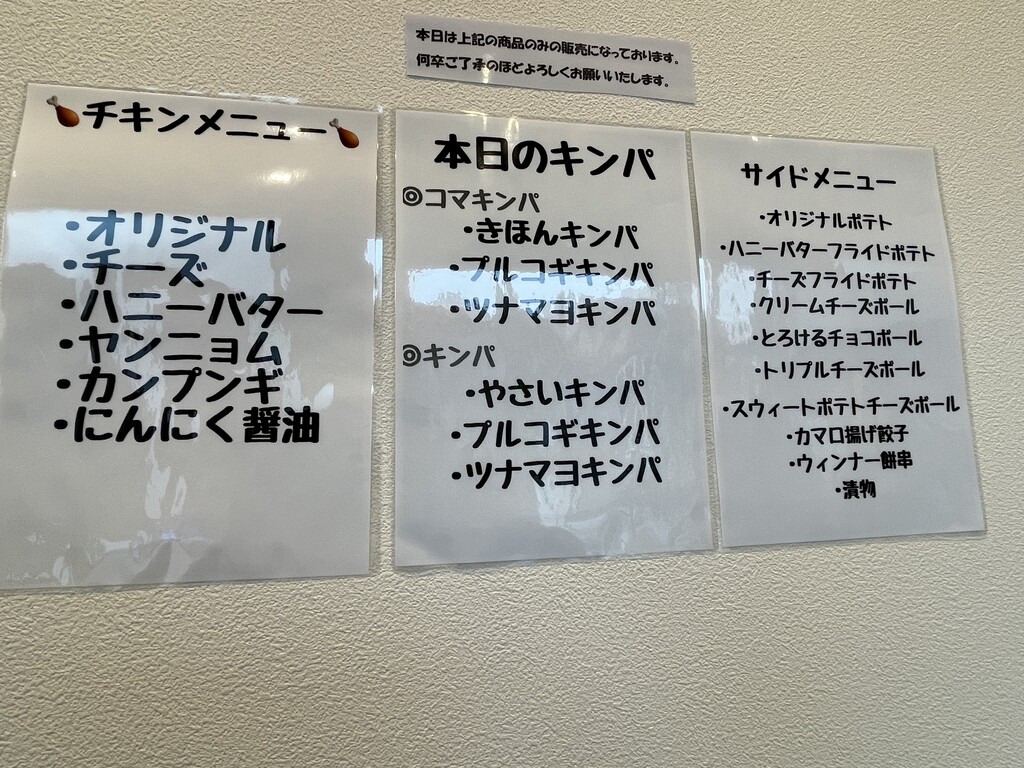 本日は上記の商品のみの販売になっております。
何卒ご了承のほどよろしくお願いいたします。
🍗チキンメニュー🍗
・オリジナル
・チーズ
・ハニーバター
・ヤンニョム
・カンプンギ
・にんにく醤油
本日のキンパ
◎コマキンパ
・きほんキンパ
・プルコギキンパ
・ツナマヨキンパ
◎キンパ
・やさいキンパ
・プルコギキンパ
・ツナマヨキンパ
サイドメニュー
・オリジナルポテト
・ハニーバターフライドポテト
・チーズフライドポテト
・クリームチーズボール
・とろけるチョコボール
・トリプルチーズボール
・スウィートポテトチーズボール
・カマロ揚げ餃子
・ウィンナー餅串
・漬物